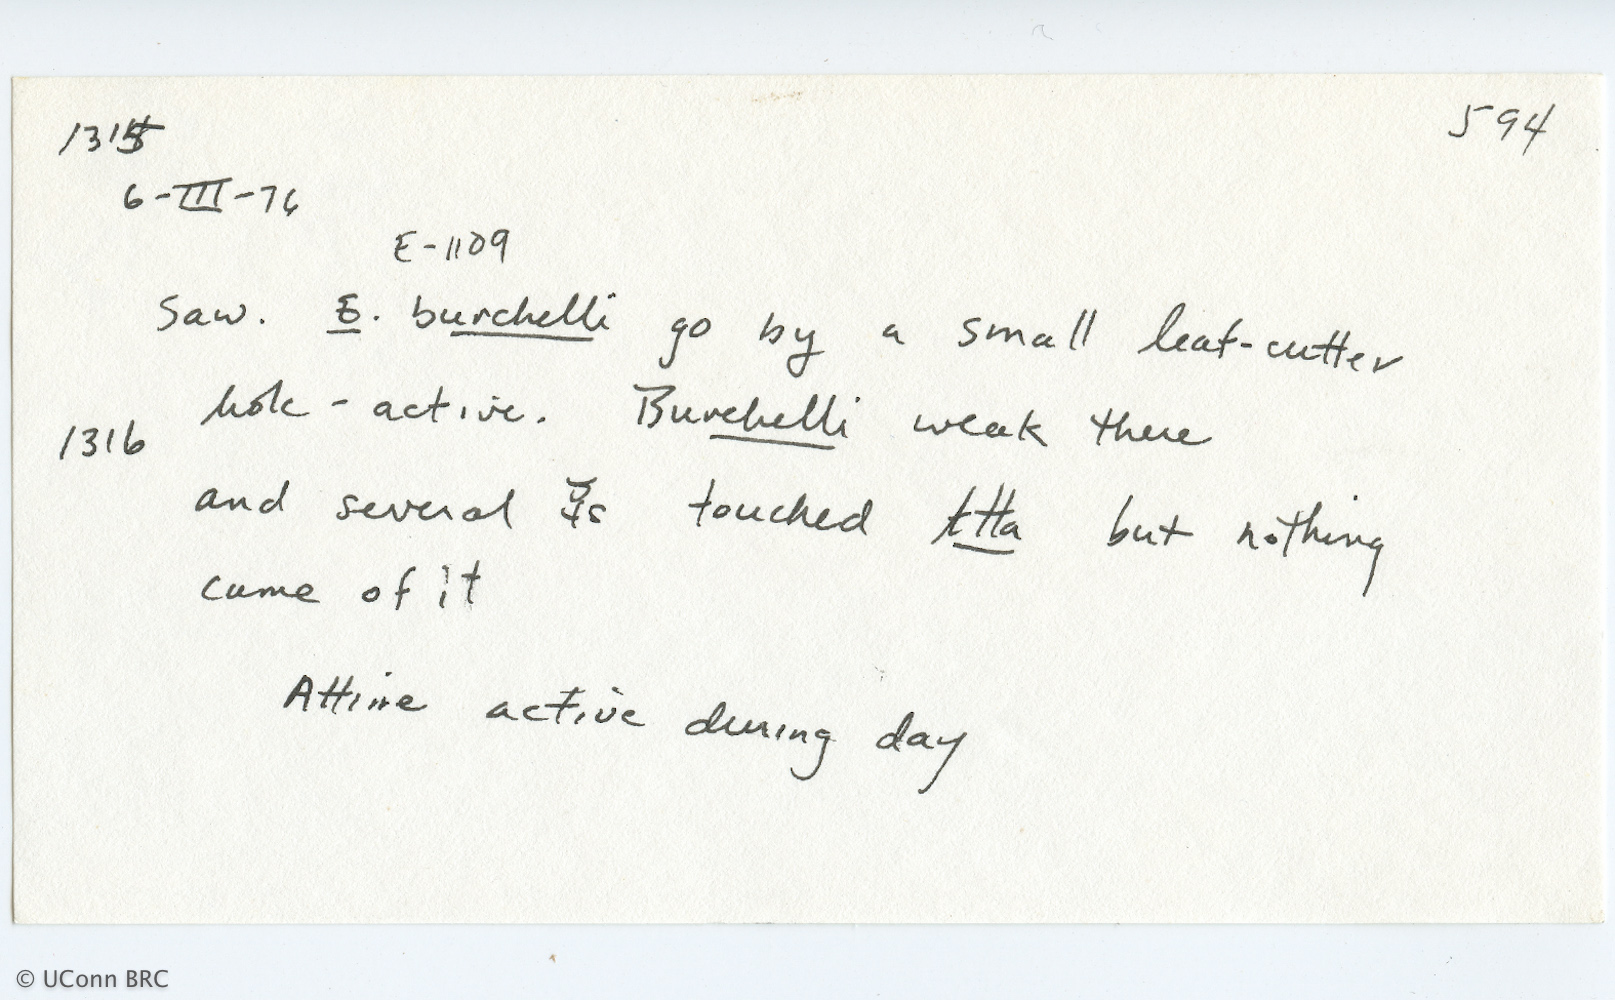 1315
594
6-III-76
E-1109
Saw. E. burchelli go by a small leaf-cutter
hole - active. Burchelli weak there
1316
and several ☿s touched Atta but nothing
came of it
Attine active during day
© UConn BRC